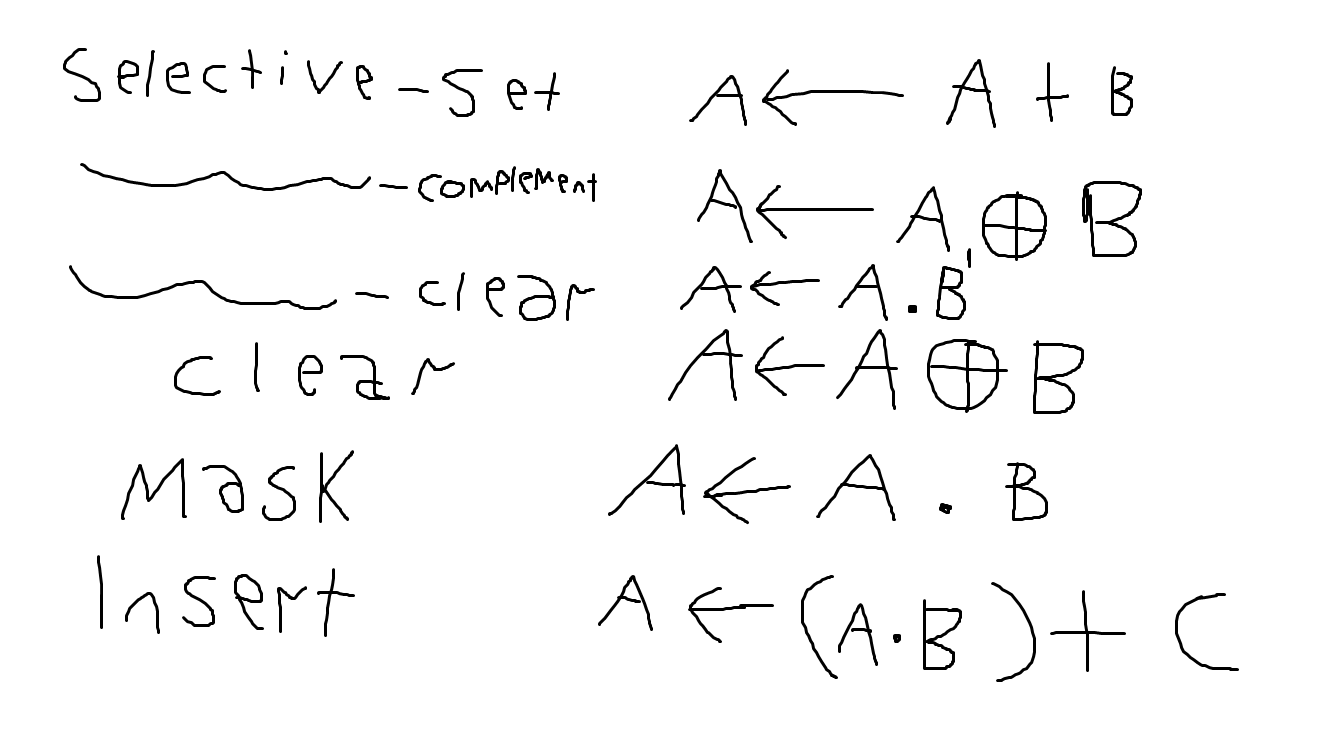 Selective - Set A ← A + B
- complement A ← A ⊕ B
- clear A ← A . B'
clear A ← A ⊕ B
Mask A ← A . B
Insert A ← (A . B) + C